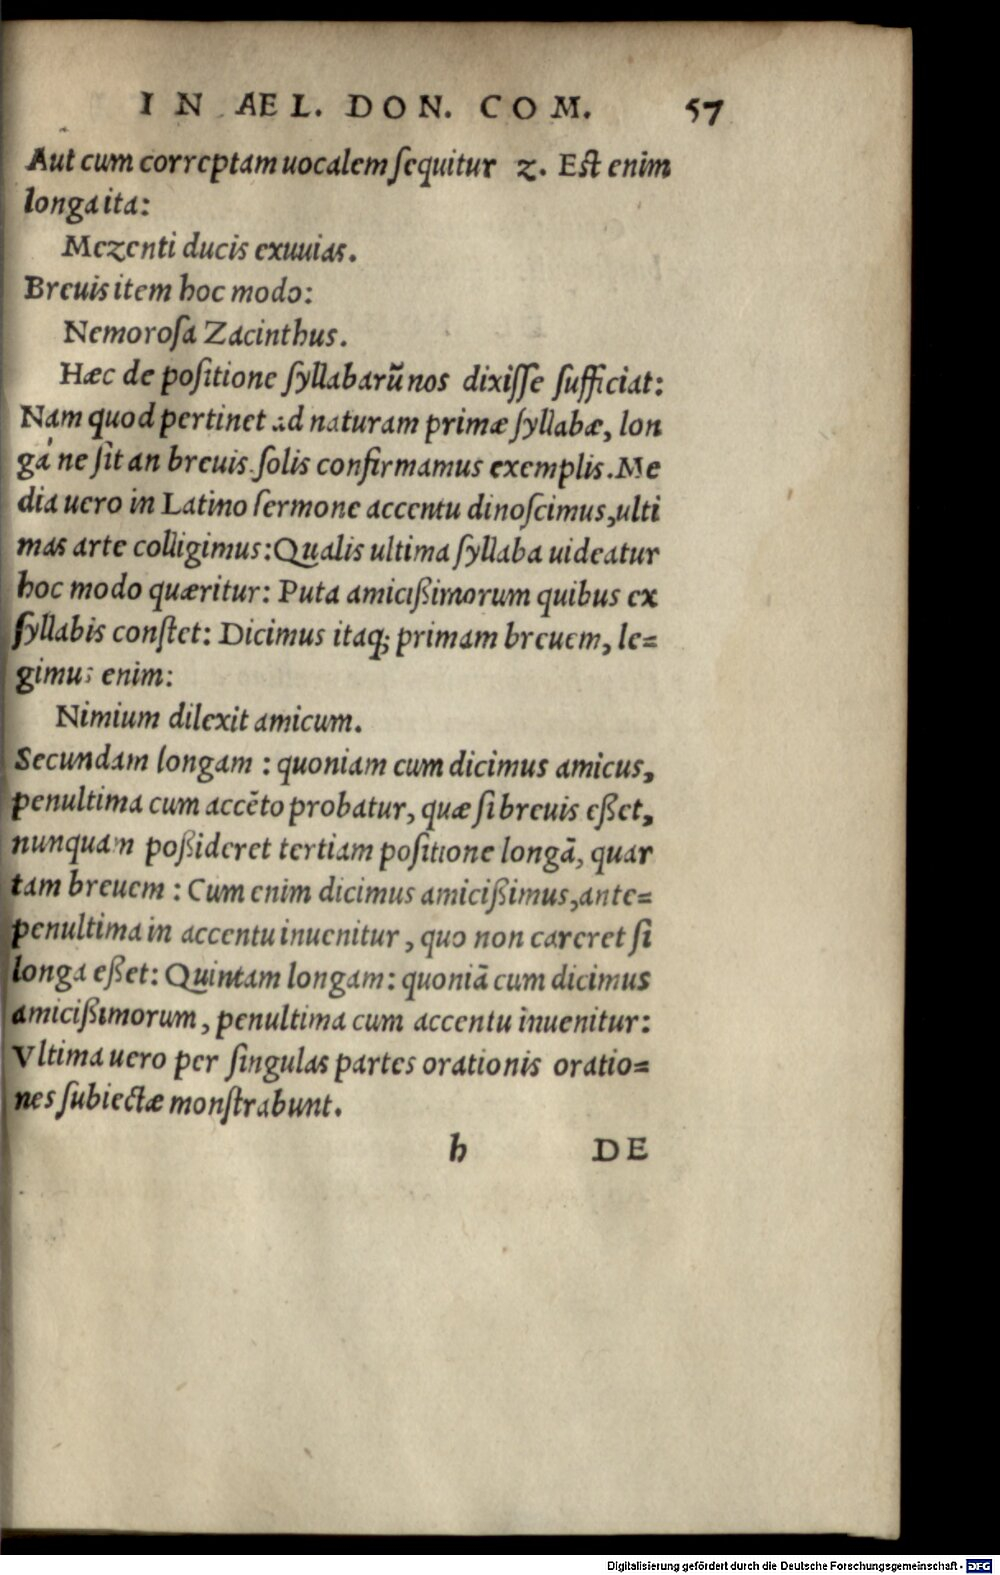 IN AEL. DON. COM. 57
Aut cum correptam uocalem ſequitur z. Eſt enim
longa ita:
Mezenti ducis exuuias.
Breuis item hoc modo:
Nemoroſa Zacinthus.
Hæc de poſitione ſyllabarũ nos dixiſſe ſufficiat:
Nam quod pertinet ad naturam primæ ſyllabæ, lon
gá ne ſit an breuis ſolis confirmamus exemplis. Me
dia uero in Latino ſermone accentu dinoſcimus, ulti
mas arte colligimus: Qualis ultima ſyllaba uideatur
hoc modo quæritur: Puta amicißimorum quibus ex
ſyllabis conſtet: Dicimus itaq; primam breuem, le=
gimus enim:
Nimium dilexit amicum.
Secundam longam : quoniam cum dicimus amicus,
penultima cum accẽto probatur, quæ ſi breuis eßet,
nunquam poßideret tertiam poſitione longã, quar
tam breuem : Cum enim dicimus amicißimus, ante=
penultima in accentu inuenitur, quo non careret ſi
longa eßet: Quintam longam: quoniã cum dicimus
amicißimorum, penultima cum accentu inuenitur:
Vltima uero per ſingulas partes orationis oratio=
nes ſubiectæ monſtrabunt.
h DE
Digitalisierung gefördert durch die Deutsche Forschungsgemeinschaft - DFG